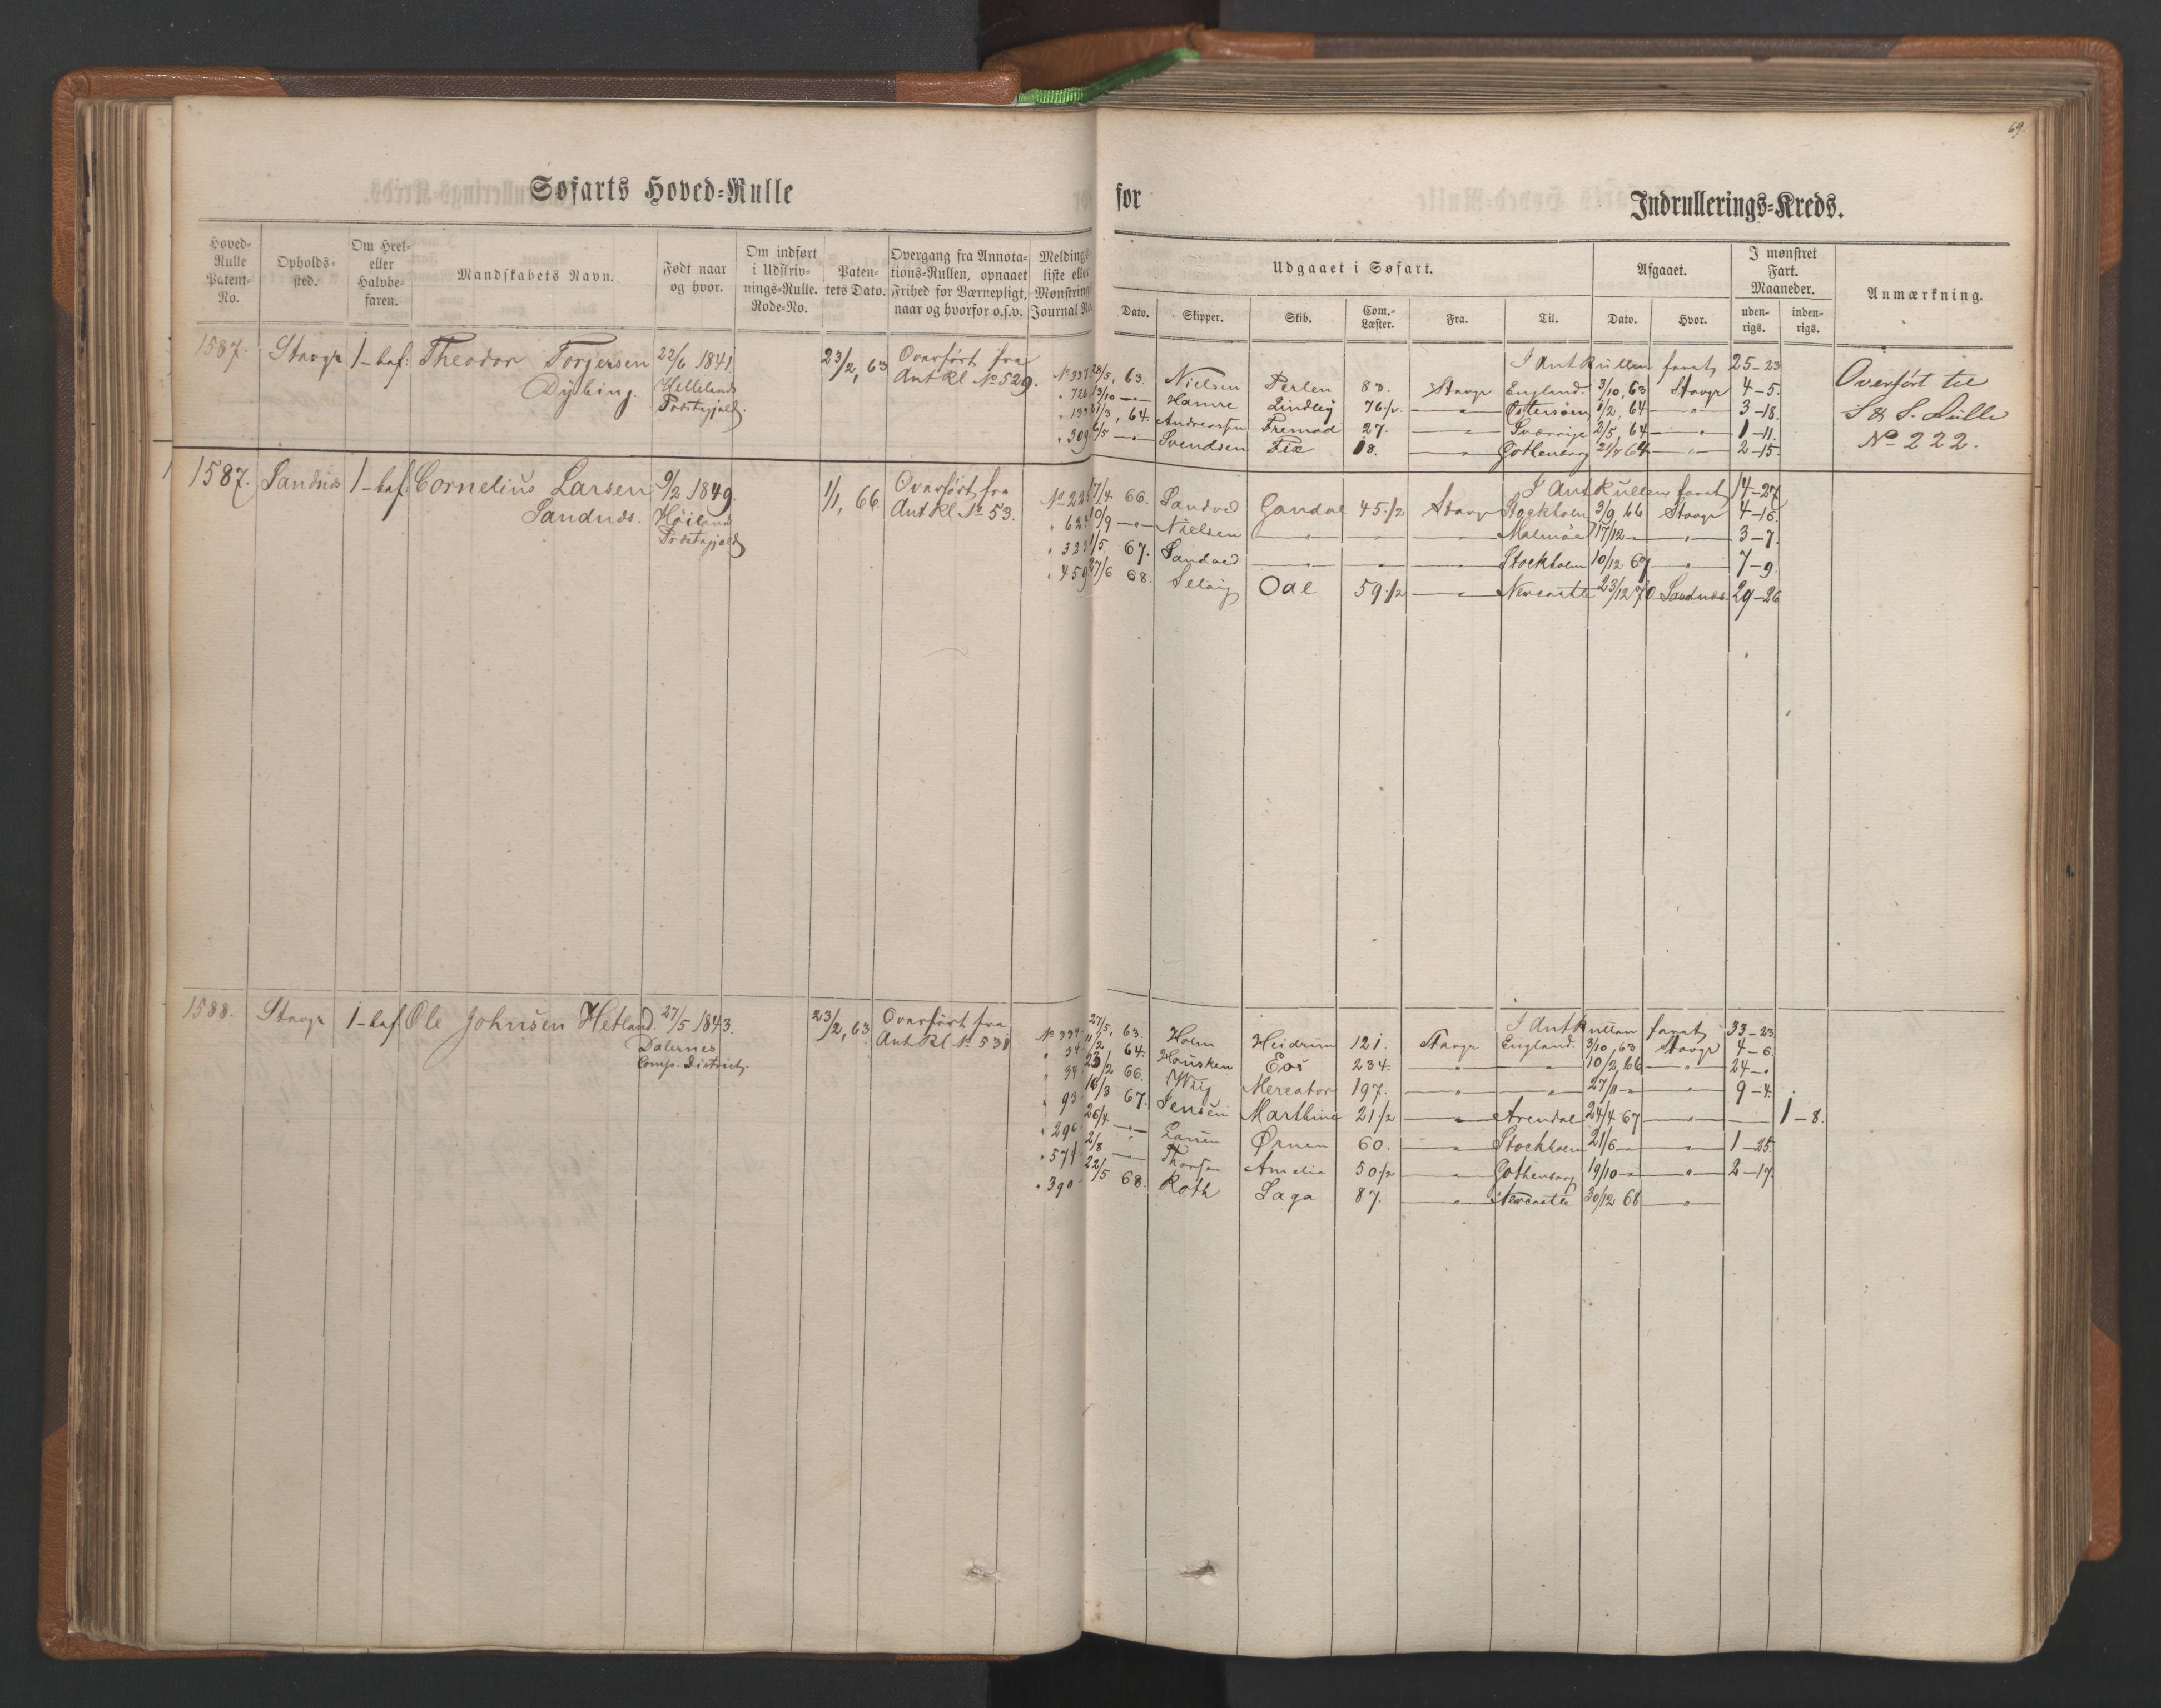 69.
Søfarts Hoved-Rulle for Indrullerings-Kreds.
Hoved-Rulle Patent-No.
Opholds-sted.
Om Heel- eller Halvbe-faren.
Mandskabets Navn.
Født naar og hvor.
Om indført i Udskriv-nings-Rulle. Rode-No.
Paten-tets Dato.
Overgang fra Annota-tions-Rullen, opnaaet Frihed for Værnepligt, naar og hvorfor o.s.v.
Meldings liste eller Mønstrings Journal No.
Udgaaet i Søfart.
Dato.
Skipper.
Skib.
Com.-Læster.
Fra.
Til.
Afgaaet.
Dato.
Hvor.
I mønstret Fart. Maaneder.
uden-rigs.
inden-rigs.
Anmærkning.
1587. Stavgr 1-bef: Theodor Torgersen 22/6 1841. 23/2, 63 Overført fra
Dybing. Hellelands Ant Rl No 529.
Præstegjeld.
I Ant Rullen faret 25-23
No 337 23/5, 63. Nielsen Perlen 83. Stavgr England. 3/10, 63 Stavgr 4-5.
" 726 13/10 -"- Hamre Lindley 76 1/2. -"- Østersøen 1/2, 64 -"- 3-18.
21/3, 64. Andreassen Fremad 27. -"- Sverrige 2/5 64 -"- 1-11.
" 309 6/5 -"- Svendsen Fix 18. -"- Gothenborg 64 -"- 2-15.
Overført til
S & S. Rulle
No 222.
1587. Sandnæs 1-bef: Cornelius Larsen 9/2 1849. 1/1, 66. Overført fra
Sandnæs. Høiland Ant Rl No 53.
Præstegjeld
I Ant Rullen faret 14-27
17/4 66. Sandved Gandal 45 1/2 Stavgr Stockholm 3/9 66 Stavgr 4-16.
" 624 10/9 -"- Nielsen -"- -"- -"- Malmøe 17/12 -"- -"- 3-7.
" 322 1/5 67. Sandved -"- -"- -"- Stockholm 10/12 67 -"- 7-9.
" 459 27/6 68. Selvig Odel 59 1/2 -"- Newcastle 23/12 70 Sandnæs 29-26
1588. Stavgr 1-bef. Ole Johnsen Hetland. 27/5 1843. 23/2, 63 Overført fra
Dalernes Ant Rl No 531
Comp. District.
I Ant Rullen faret 33-23
No 334 27/5, 63. Holm Heidrun 121. Stavgr England. 3/10, 63 Stavgr 4-6.
" 34 11/2 64. Housken Eos 234. -"- -"- 10/2, 66 -"- 24-"
" 34 23/2 66. Wiig Mercator 197. -"- -"- 27/11 -"- -"- 9-4.
" 93 16/3 67. Jensen Marthine 21 1/2 -"- Arendal 24/4 67 -"- - 1-8.
" 296 26/4 -"- Larsen Ørnen 60. -"- Stockholm 21/6 -"- -"- 1-25.
" 571 2/8 -"- Thorsen Amelia 50 1/2 -"- Gothenborg 19/10 -"- -"- 2-17.
" 390 22/5 68. Roth Saga 87. -"- Newcastle 30/12 68 -"-